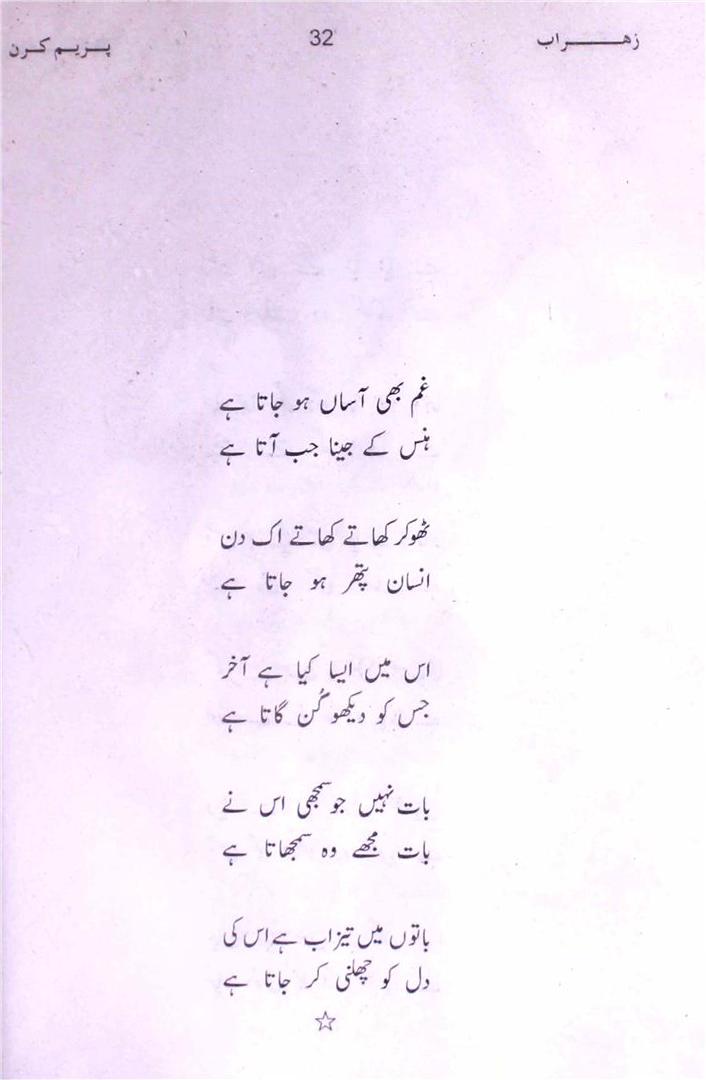 زهراب
32
پریم کرن
غم بھی آساں ہو جاتا ہے
ہنس کے جینا جب آتا ہے
ٹھوکر کھاتے کھاتے اک دن
انسان پتھر ہو جاتا ہے
اس میں ایسا کیا ہے آخر
جس کو دیکھو گُن گاتا ہے
بات نہیں جو سمجھی اس نے
بات مجھے وہ سمجھاتا ہے
باتوں میں تیزاب ہے اس کی
دل کو چھلنی کر جاتا ہے